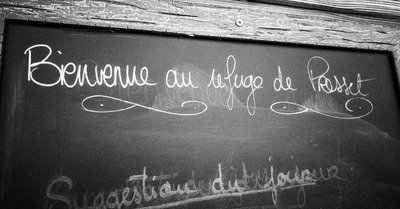 Bienvenue au refuge de Presset
Suggestion du jour :